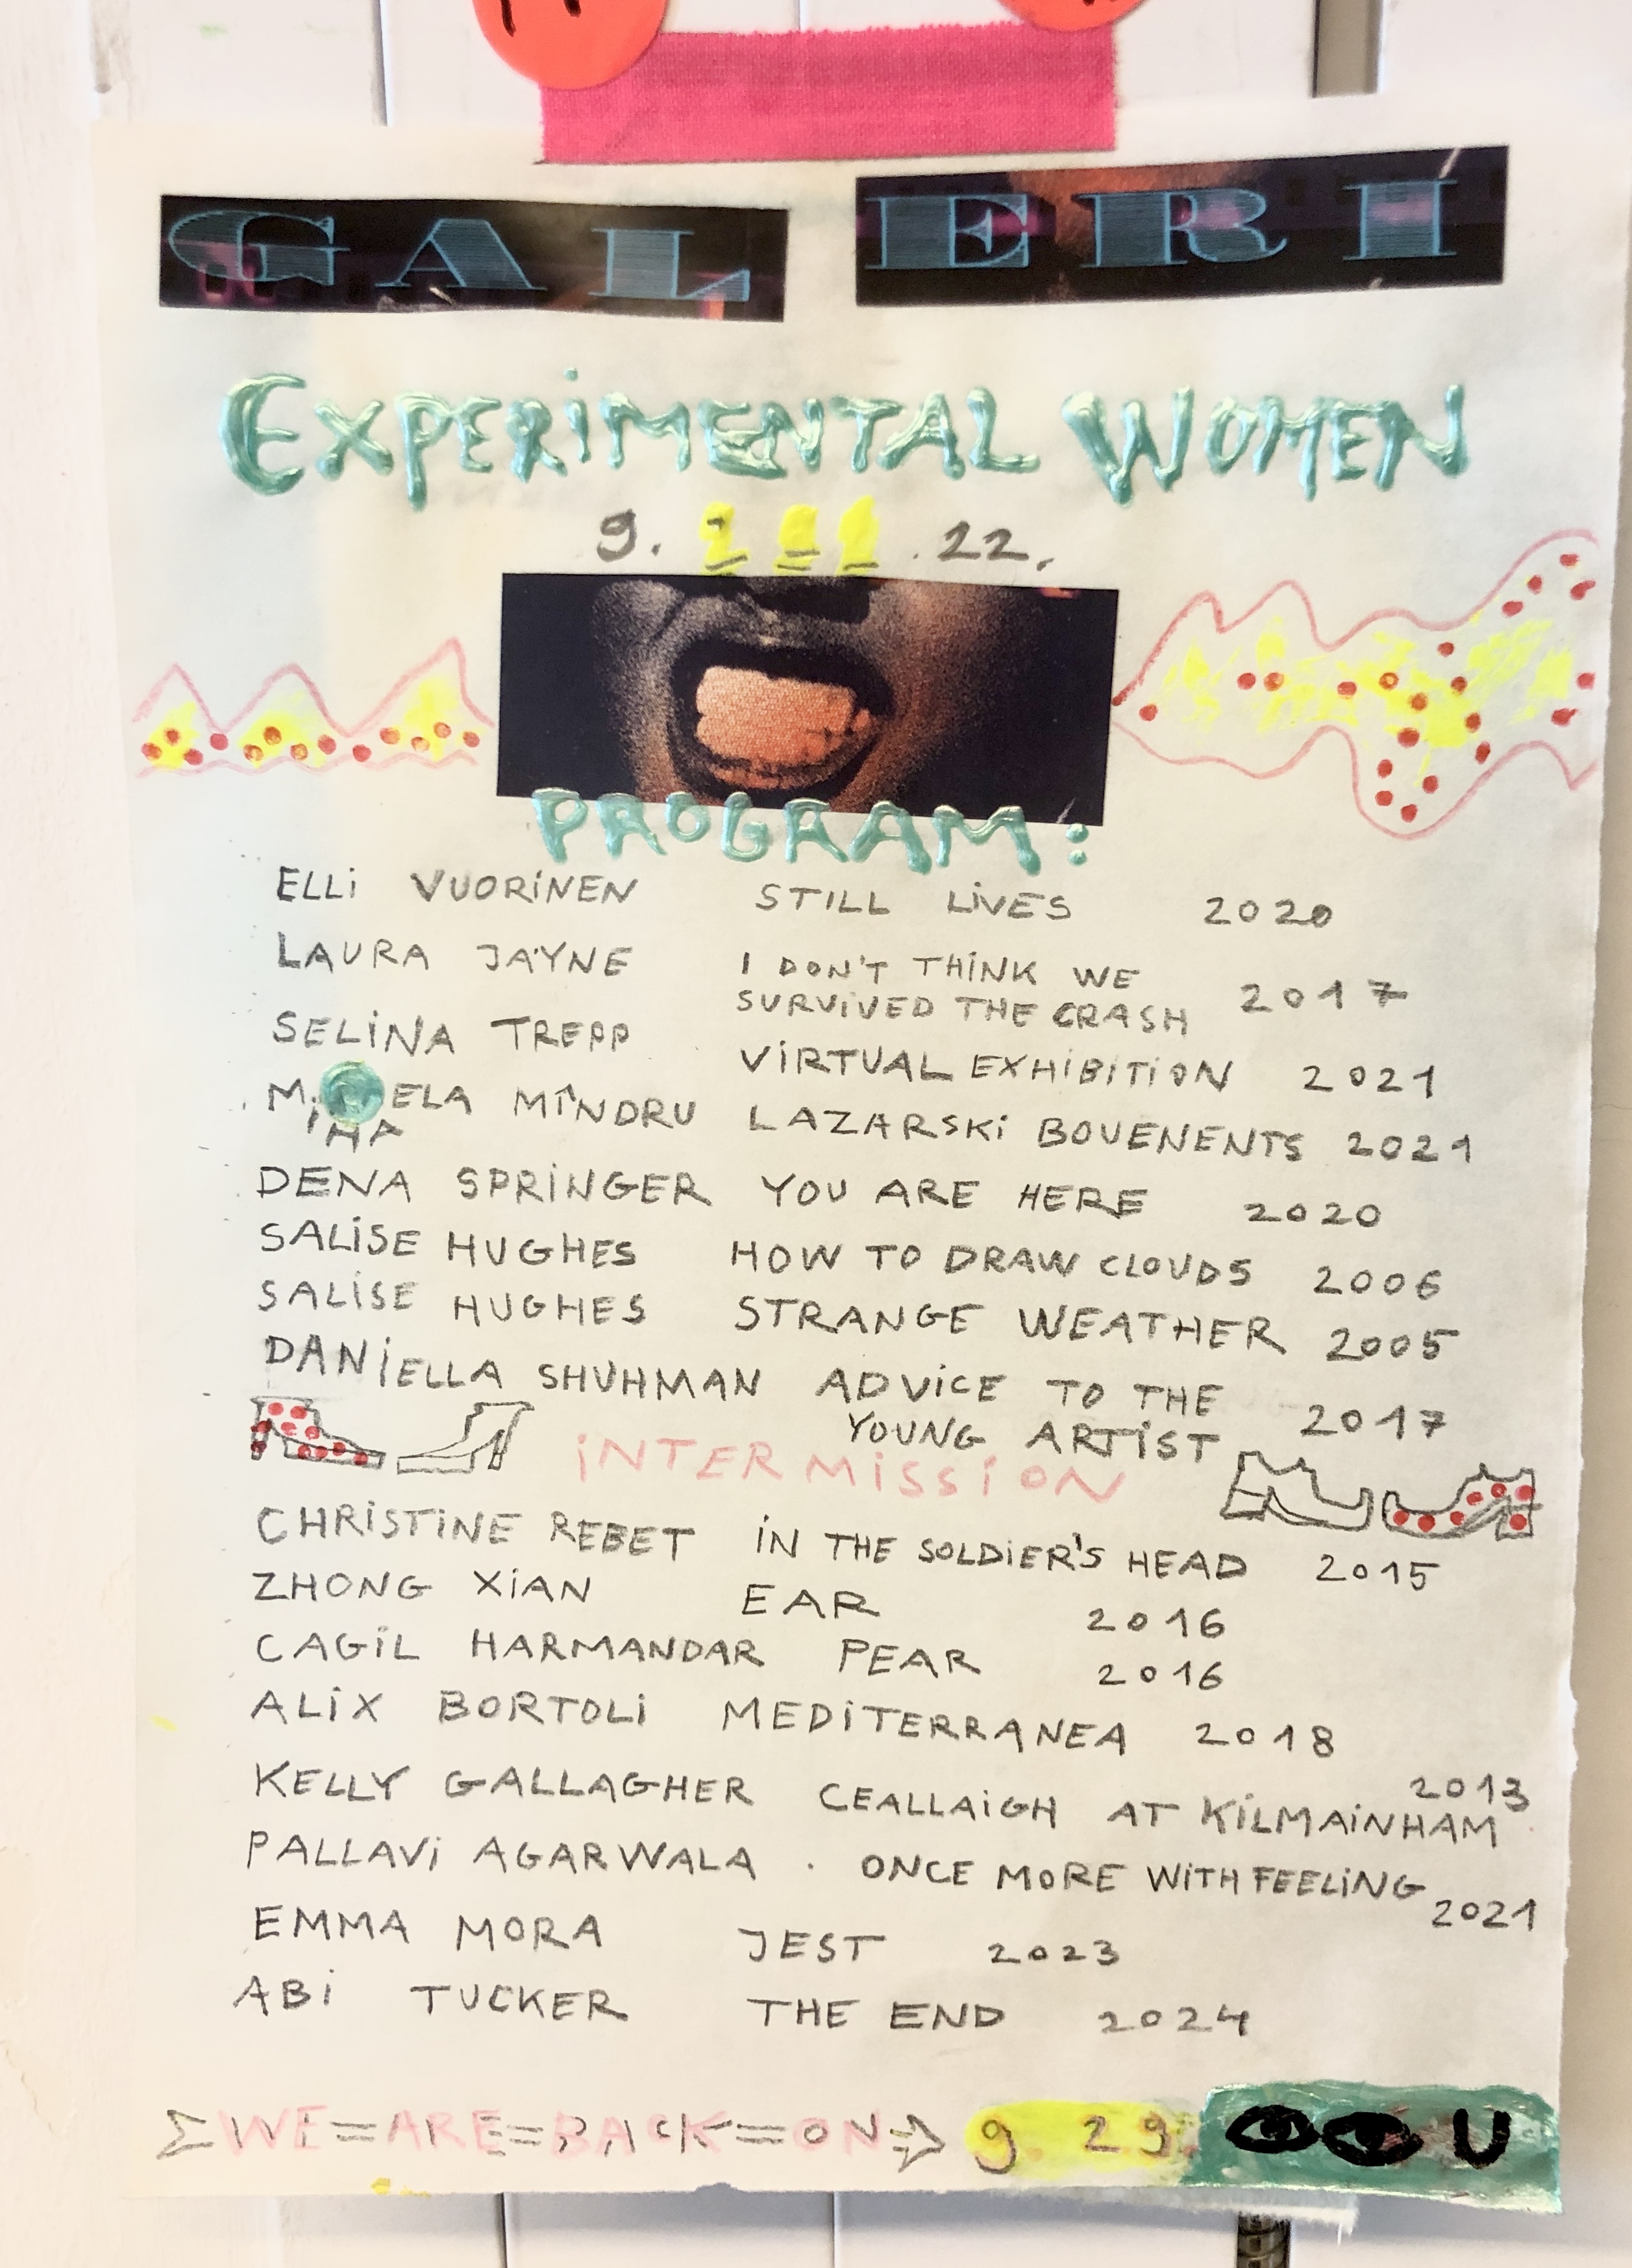 GALERI
EXPERiMENTAL WOMEN
9. .22.
PROGRAM:
ELLi VUORiNEN STILL LiVES 2020
LAURA JAYNE I DON'T THiNK WE
SURViVED THE CRASH 2017
SELiNA TREPP ViRTUAL EXHiBiTiON 2021
MiHAELA MÎNDRU LAZARSKi BOVENENTS 2021
DENA SPRiNGER YOU ARE HERE 2020
SALiSE HUGHES HOW TO DRAW CLOUDS 2006
SALiSE HUGHES STRANGE WEATHER 2005
DANiELLA SHUHMAN ADViCE TO THE
YOUNG ARTiST 2017
iNTERMiSSiON
CHRiSTiNE REBET iN THE SOLDiER'S HEAD 2015
ZHONG XiAN EAR 2016
CAGiL HARMANDAR PEAR 2016
ALiX BORTOLi MEDiTERRANEA 2018
KELLY GALLAGHER CEALLAiGH AT KiLMAiNHAM 2013
PALLAVi AGARWALA · ONCE MORE WiTH FEELiNG 2021
EMMA MORA JEST 2023
ABi TUCKER THE END 2024
WE=ARE=BACK=ON=> 9. 29. U